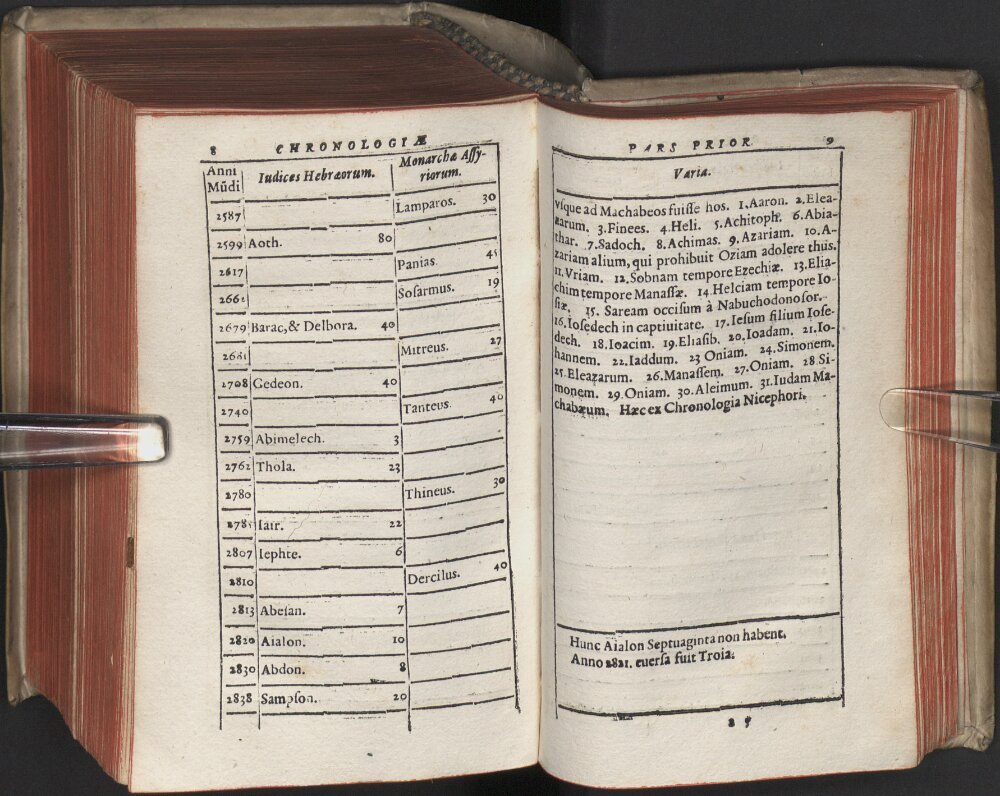 8 CHRONOLOGIÆ
Anni Mũdi Iudices Hebræorum. Monarchæ Aſſy-
riorum.
2587 Lamparos. 30
2599 Aoth. 80
2617 Panias. 45
2662 Soſarmus. 19
2679 Barac,& Delbora. 40
2681 Mitreus. 27
2708 Gedeon. 40
2740 Tanteus. 40
2759 Abimelech. 3
2762 Thola. 23
2780 Thineus. 30
2785 Iair. 22
2807 Iephte. 6
2810 Dercilus. 40
2813 Abeſan. 7
2820 Aialon. 10
2830 Abdon. 8
2838 Sampſon. 20
PARS PRIOR. 9
Varia.
vſque ad Machabeos fuiſſe hos. 1.Aaron. 2.Elea-
zarum. 3.Finees. 4.Heli. 5.Achitoph. 6.Abia-
thar. 7.Sadoch. 8.Achimas. 9.Azariam. 10.A-
zariam alium, qui prohibuit Oziam adolere thus.
11.Vriam. 12.Sobnam tempore Ezechiæ. 13.Elia-
chim tempore Manaſſæ. 14.Helciam tempore Io-
ſiæ. 15. Saream occiſum à Nabuchodonoſor.
16.Ioſedech in captiuitate. 17.Ieſum filium Ioſe-
dech. 18.Ioacim. 19.Eliaſib. 20.Ioadam. 21.Io-
hannem. 22.Iaddum. 23 Oniam. 24.Simonem.
25.Eleazarum. 26.Manaſſem. 27.Oniam. 28 Si-
monem. 29 Oniam. 30.Aleimum. 31.Iudam Ma-
chabæum. Hæc ex Chronologia Nicephori.
Hunc Aialon Septuaginta non habent.
Anno 2821. euerſa fuit Troia.